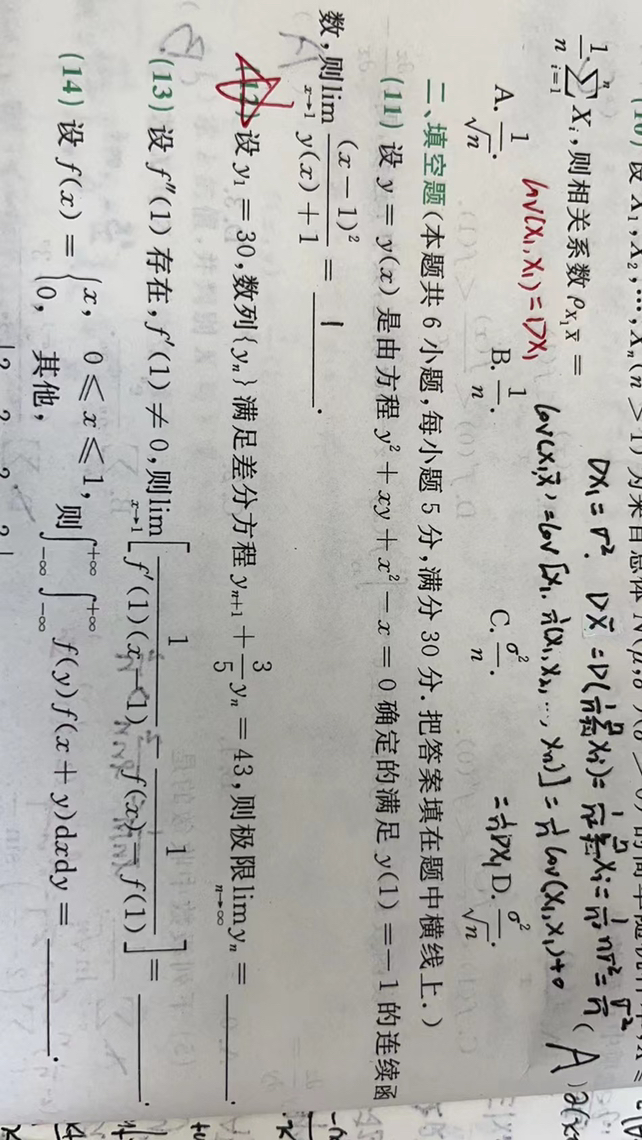 (10) 设 X₁, X₂, …, Xₙ(n > 1) 为来自总体 N(μ, σ²)(σ > 0) 的简单随机样本, X̄ =
1/n ∑ᵢ₌₁ⁿ Xᵢ, 则相关系数 ρ_{X₁X̄} = (A)
DX₁ = σ². DX̄ = D(1/n ∑ᵢ₌₁ⁿ Xᵢ) = 1/n² ∑ Xᵢ = 1/n² nσ² = σ²/n
cov(X₁, X₁) = DX₁
cov(X₁, X̄) = cov[X₁, 1/n(X₁, X₂, …, Xₙ)] = 1/n cov(X₁, X₁) + 0
= 1/n DX₁
A. 1/√n. B. 1/n. C. σ²/n. D. σ²/√n.
二、填空题(本题共 6 小题, 每小题 5 分, 满分 30 分. 把答案填在题中横线上.)
(11) 设 y = y(x) 是由方程 y² + xy + x² − x = 0 确定的满足 y(1) = −1 的连续函
数, 则 lim_{x→1} (x−1)²/(y(x)+1) = 1 .
(12) 设 y₁ = 30, 数列{yₙ}满足差分方程 yₙ₊₁ + 3/5 yₙ = 43, 则极限 lim_{n→∞} yₙ = ______.
(13) 设 f″(1) 存在, f′(1) ≠ 0, 则 lim_{x→1} [1/(f′(1)(x−1)) − 1/(f(x)−f(1))] = ______.
(14) 设 f(x) = {x, 0 ⩽ x ⩽ 1, 0, 其他, 则 ∫_{−∞}^{+∞} ∫_{−∞}^{+∞} f(y)f(x+y)dxdy = ______.